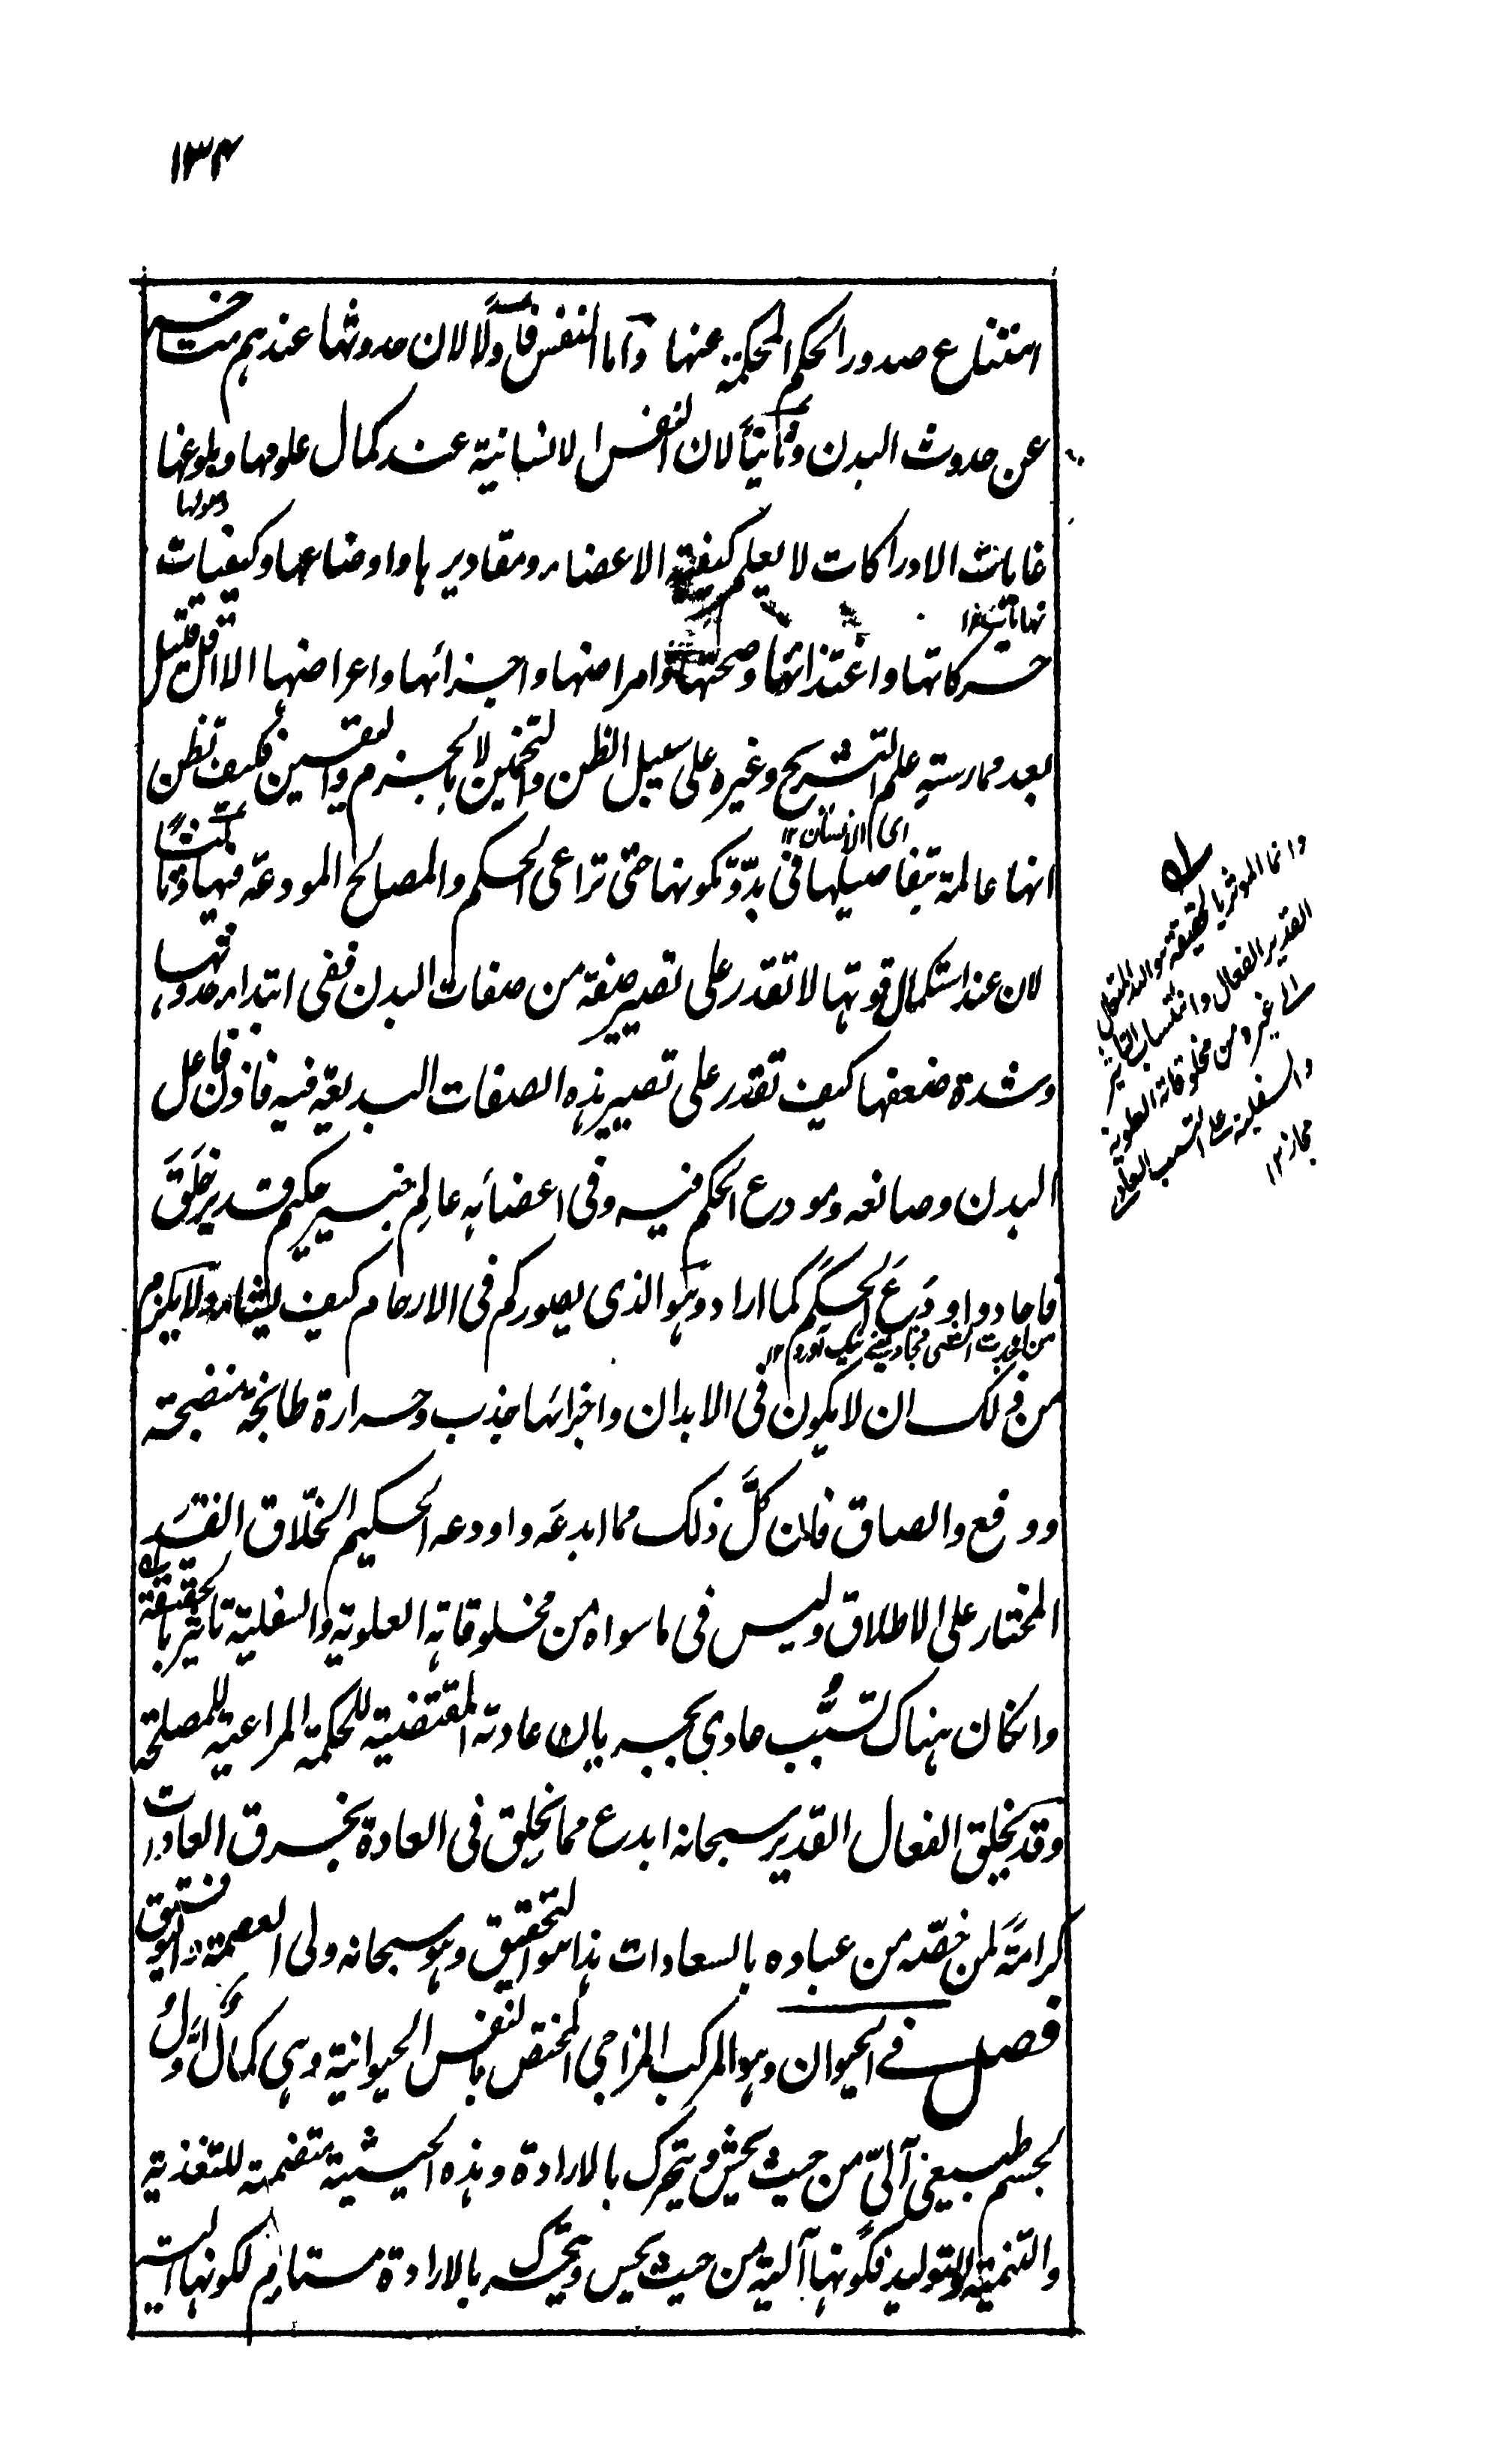 ١٣٤
امتناع صدور الحكم المحكمة عنها واما النفس فاولًا لان حدوثها عندهم متاخر
عن حدوث البدن وثانيًا لان النفس الانسانية عند كمال علومها وبلوغها
غايات الادراكات لا يعلم كيفية الاعضاء ومقاديرها واوضاعها وكيفيات
نهايات ١٢
حركاتها واغتذائها وصحتها وامراضها واجزائها واعراضها الا اقل قليل
بعد ممارسة علم التشريح وغيره على سبيل الظن والتخمين لا بالجزم واليقين فكيف تظن
اى الانسان ١٢
انها عالمة بتفاصيلها فى بدو تكونها حتى تراعى الحكم والمصالح المودعة فيها وثالثًا
لان عند استكمال قوتها لا تقدر على تصير صفة من صفات البدن ففى ابتداء حدوثها
وشدة ضعفها كيف تقدر على تصيير هذه الصفات البديعة فيه فاذن فاعل
البدن وصانعه ومودع الحكم فيه وفى اعضائه عالم خبير حكيم قدير خَلَقَ
فاجاد واودَعَ الحِكَمَ كما اراد وهو الذى يصوركم فى الارحام كيف يشاء ولا يلزم
من ذلك ان لا يكون فى الابدان واجزائها جذب وحرارة طابخة منضجة
ودفع والصاق فان كلَّ ذلك مما ابدعَه واودعه الحكيم الخلّاق القدير
المختار على الاطلاق وليس فى ما سواه من مخلوقاته العلوية والسفلية تاثير بالحقيقة
وانكان هناك تسبُّب عادى بجريان عادته المقتضية للحكمة المراعية للمصلحة
وقد يخلق الفعال القدير سبحانه ابدع مما يخلق فى العادة بخرق العادات
كرامةً لمن خصّه من عباده بالسعادات هذا هو التحقيق وهو سبحانه ولى العصمة والتوفيق
فصل فى الحيوان وهو المركب المزاجى المختص بالنفس الحيوانية وهى كمالٌ اوَّلُ
لجسم طبيعى آلىّ من حيث يحس ويتحرك بالارادة وهذه الحيثية متضمنة للتغذية
والتنمية والتوليد فكونها آلية من حيث يحس ويتحرك بالارادة مستلزم لكونها الية
وانما الموثر بالحقيقة هو الله المتعال
القدير الفعال وانتساب التاثير
الى غيره من مخلوقاته العلوية
والسفلية على التسبب العادى
مجاز ١٢